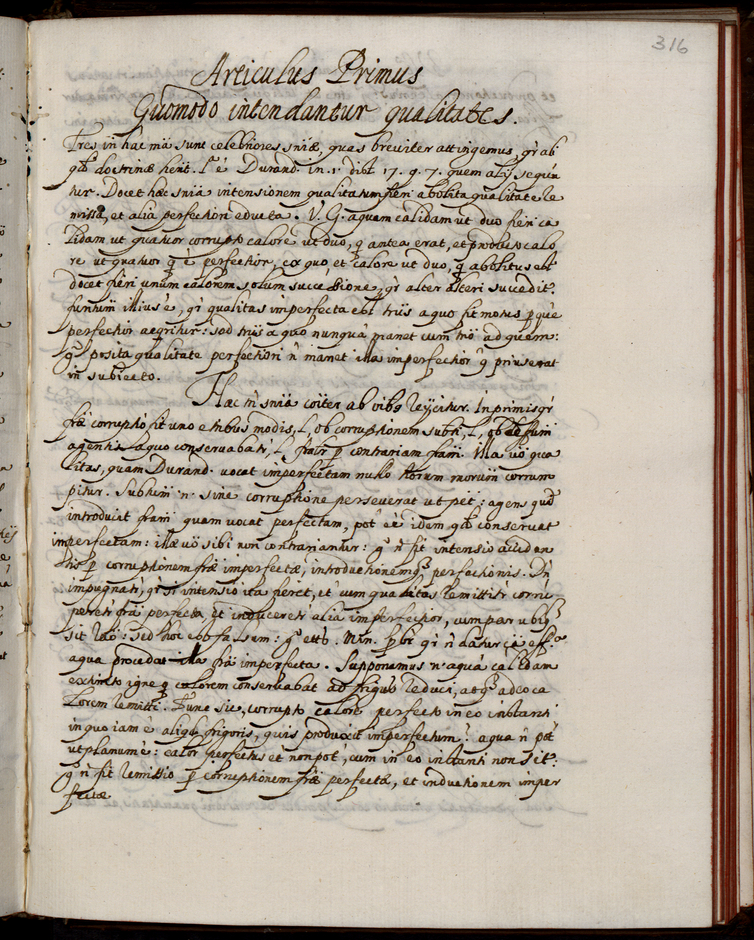 316
Articulus Primus
Quomodo intendantur qualitates.
Tres in hac mã sunt celebriores sniæ, quas breviter attingemus, qr ali
qb doctrinæ hent. Pª ê Durand. in 1. dist. 17. q. 7. quem alij sequn
tur. Docet hæc snia intensionem qualitatum fieri abolita qualitate re
missa, et alia perfectiori educta. V. G. aquam calidam ut duo fieri ca
lidam ut quatuor corrupto calore ut duo, q antea erat, et producto calo
re ut quatuor q ê perfectior, ex quo et calore ut duo, q abolitus est
docet fieri unum calorem solum successione, qr alter alteri succedit.
funtum illius ê, qr qualitas imperfecta est triis a quo fit motus
perfectior aqritur: sed triis a quo nunquã manet cum trio ad quem:
g posita qualitate perfectiori ñ manet illa imperfectior q prius erat
in subiecto.
Hæc tñ snia coiter ab oibs reijcitur. In primis qr
fræ corruptio fit uno e tribus modis, l, ob corruptionem subti, l, ob
agentis a quo conservabati, l, p contrariam fram. Illa uõ qua
litas, quam Durand. vocat imperfectam nullo horum modorum corrum
pitur. Subtum n. sine corruptione perseverat ut pet: agens qud
introducit fram quam vocat perfectam, pot eê idem qd conservat
imperfectam: illæ uõ sibi non contrariantur: g ñ fit intensio acciden
tis p corruptionem fræ imperfectæ, introductionemq perfectionis. Dñ
impugnati, qr si intensio ita fieret, et cum qualitas remittiti corrum
pereti fra perfecta, et induceretr alia imperfectior, cum par ubiq
sit rão: sed hoc est falsum: g etc. Min. pbr qr ñ datur câ
aqua procedat illa fra imperfecta. Supponamus n. aquã calidam
extincto igne q calorem conservabat ad frigus reduci, atq adeo ca
lorem remitti. Tunc sic, corrupto calore perfecto in eo instanti
in quo iam ê aliqd frigoris, quis producit imperfectum? aqua ñ pot
ut planum ê: calor perfectus et non pot, cum in eo instanti non sit:
g ñ fit remissio p corruptionem fræ perfectæ, et inductionem imper
fectæ